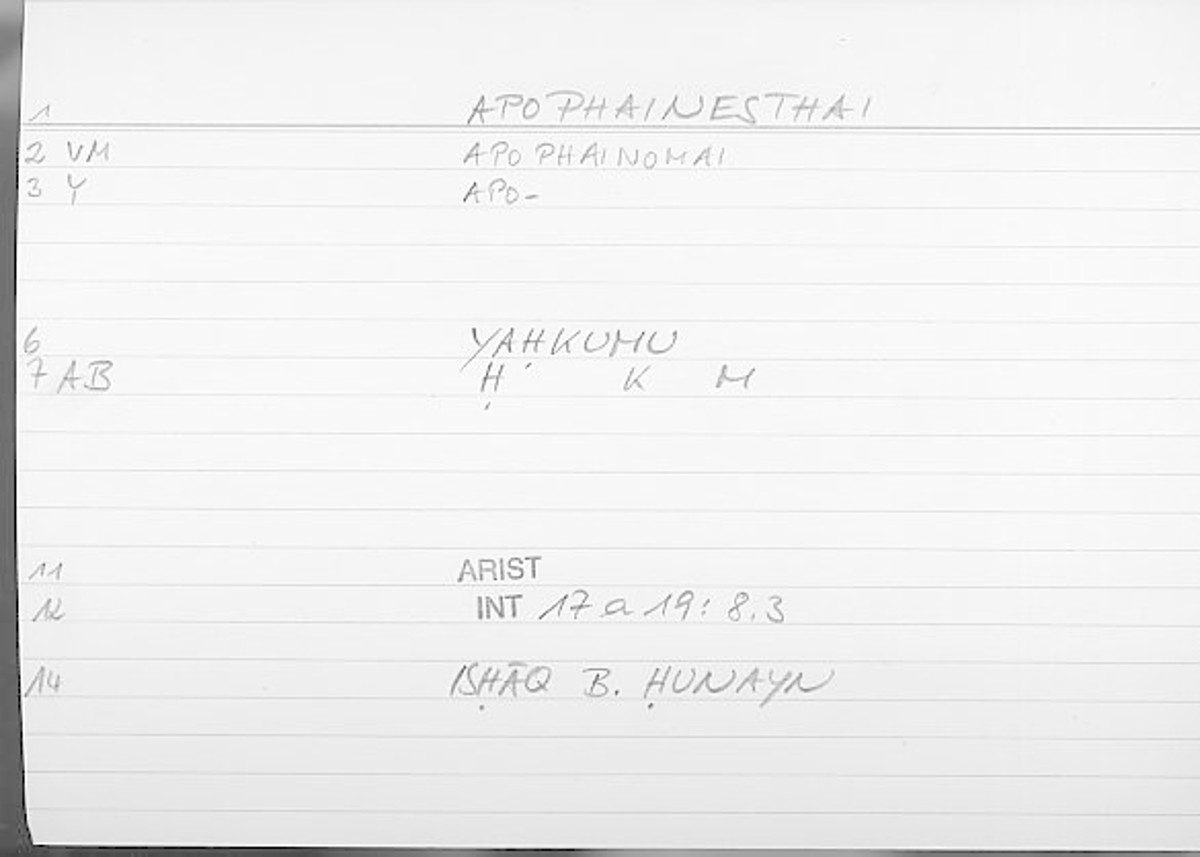 1 APOPHAINESTHAI
2 VM APOPHAINOMAI
3 Y APO-
6 YAḤKUMU
7 AB Ḥ K M
11 ARIST
12 INT 17a19: 8.3
14 ISḤĀQ B. ḤUNAYN